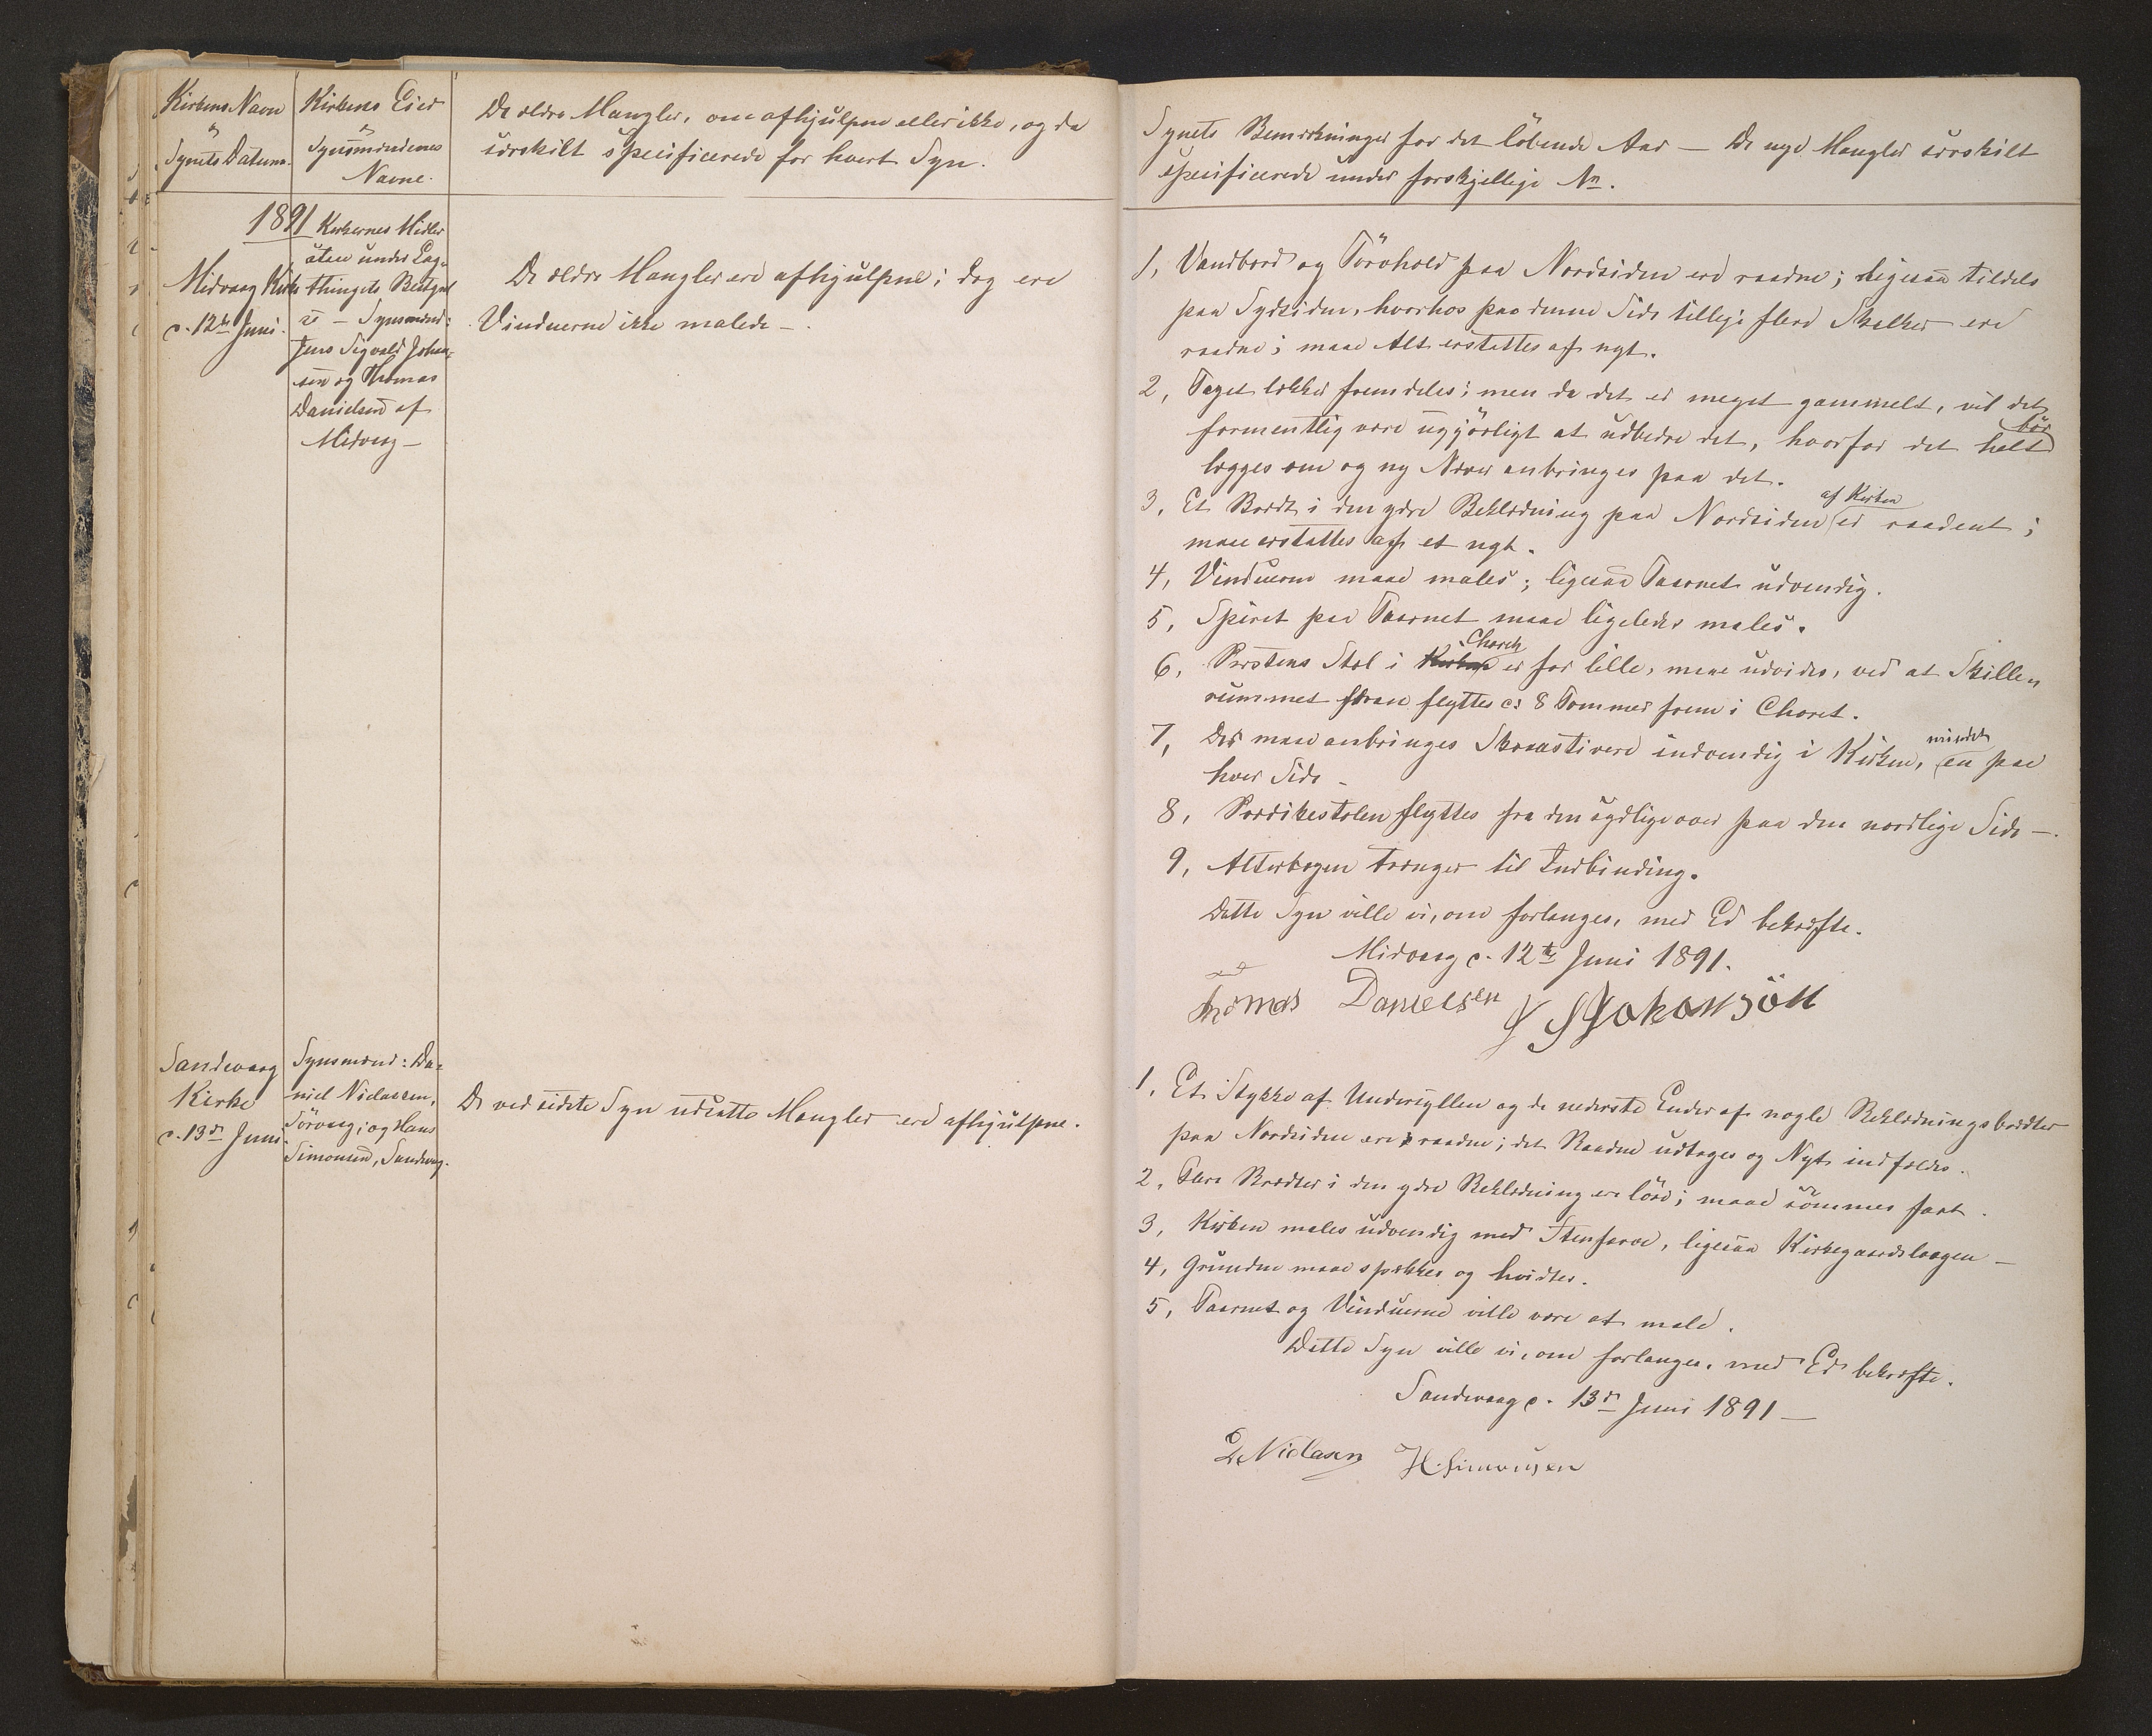 Kirkens Navn
&
Synets Datum.
Kirkens Eier
&
Synsmændenes
Navne.
De ældre Mangler, om afhjulpne eller ikke, og da
særskilt specificerede for hvert Syn.
1891
Midvaag Kirke
d. 12te Juni.
Kirkernes Midler
uten under Lag-
thingets Bestyrel
se – Synsmænd:
Jens Sigvald Johan-
sen og Thomas
Danielsen af
Midvaag –
De ældre Mangler ere afhjulpne; dog ere
Vinduerne ikke malede –.
Sandevaag
Kirke
d. 13de Juni
Synsmænd: Da-
niel Niclassen,
Sörvaag; og Hans
Simonsen, Sandevaag.
De ved sidste Syn udsatte Mangler ere afhjulpne.
Synets Bemærkninger for det löbende Aar – De nye Mangler særskilt
specificerede under forskjellige No.
1, Vandbord og Törvhold paa Nordsiden ere raadne; ligesaa tildels
paa Sydsiden, hvorhos paa denne Side tillige flere Skalker ere
raadne; maa Alt erstattes af nyt.
2, Taget lækker fremdeles; men da det er meget gammelt, vil det
formentlig være ugjörligt at udbedre det, hvorfor det bör helt
lægges om og ny Næver anbringes paa det.
3, Et Brædt i den ydre Beklædning paa Nordsiden af Kirken er raadent;
maa erstattes af et nyt.
4, Vinduerne maae males; ligesaa Taarnet udvendig.
5, Spiret paa Taarnet maae ligeledes males.
6, Præstens Stol i Choret er for lille, maa udvides, ved at Skille-
rummet foran flyttes c: 8 Tommer frem i Choret.
7, Der maa anbringes Skraastivere indvendig i Kirken, mindst en paa
hver Side –
8, Prædikestolen flyttes fra den sydlige over paa den nordlige Side –.
9, Alterbogen trænger til Indbinding.
Dette Syn ville vi, om forlanges, med Ed bekræfte.
Midvaag d. 12te Juni 1891.
Thomas Danielsen J S Johansön
1, Et Stykke af Undersyllen og de nederste Ender af nogle Beklædningsbrædter
paa Nordsiden ere raadne; det Raadne udtages og Nyt indfældes.
2, Flere Brædter i den ydre Beklædning ere löse; maae sömmes fast.
3, Kirken males udvendig med Stenfarve, ligesaa Kirkegaardslaagen –
4, Grunden maae spækkes og hvidtes.
5, Taarnet og Vinduerne ville være at male.
Dette Syn ville vi, om forlanges, med Ed bekræfte.
Sandevaag d. 13de Juni 1891 –
D Niclasen H. Simonsen